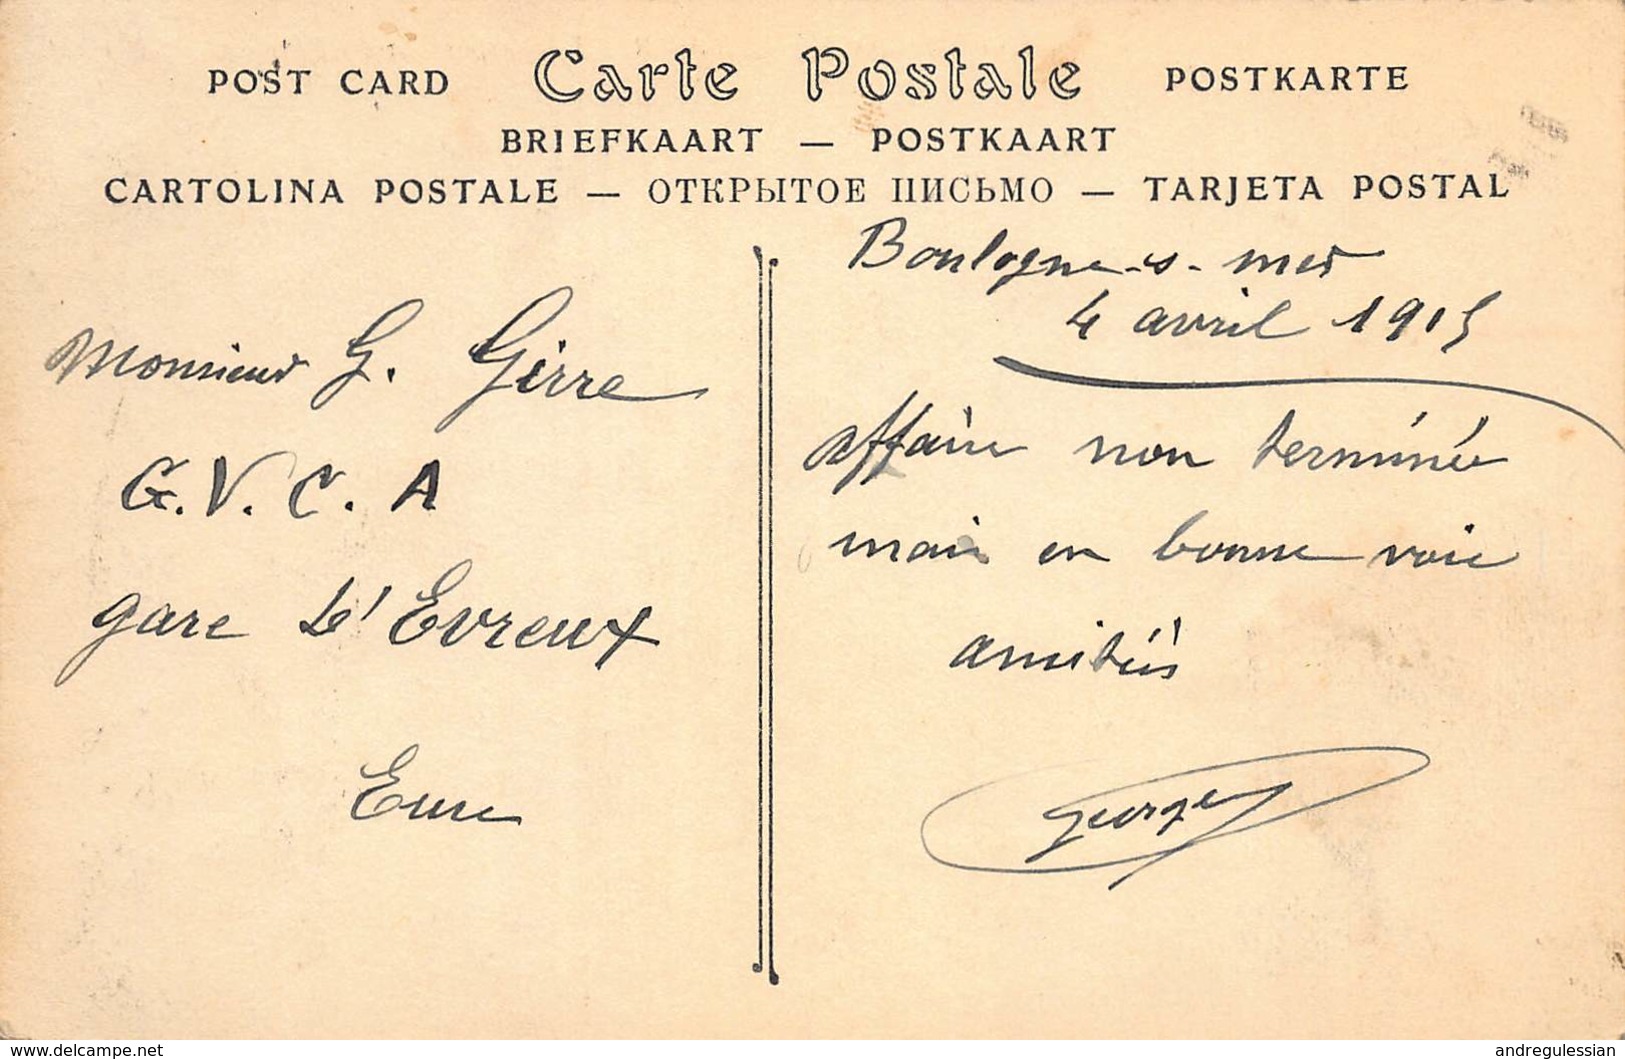 POST CARD Carte Postale POSTKARTE
BRIEFKAART — POSTKAART
CARTOLINA POSTALE — ОТКРЫТОЕ ПИСЬМО — TARJETA POSTAL
Boulogne-s-mer
4 avril 1915
affaire non terminée
mais en bonne voie
amitiés
Georges
Monsieur G. Girre
G.V.C.A
gare d'Evreux
Eure
www.delcampe.net
andregulessian